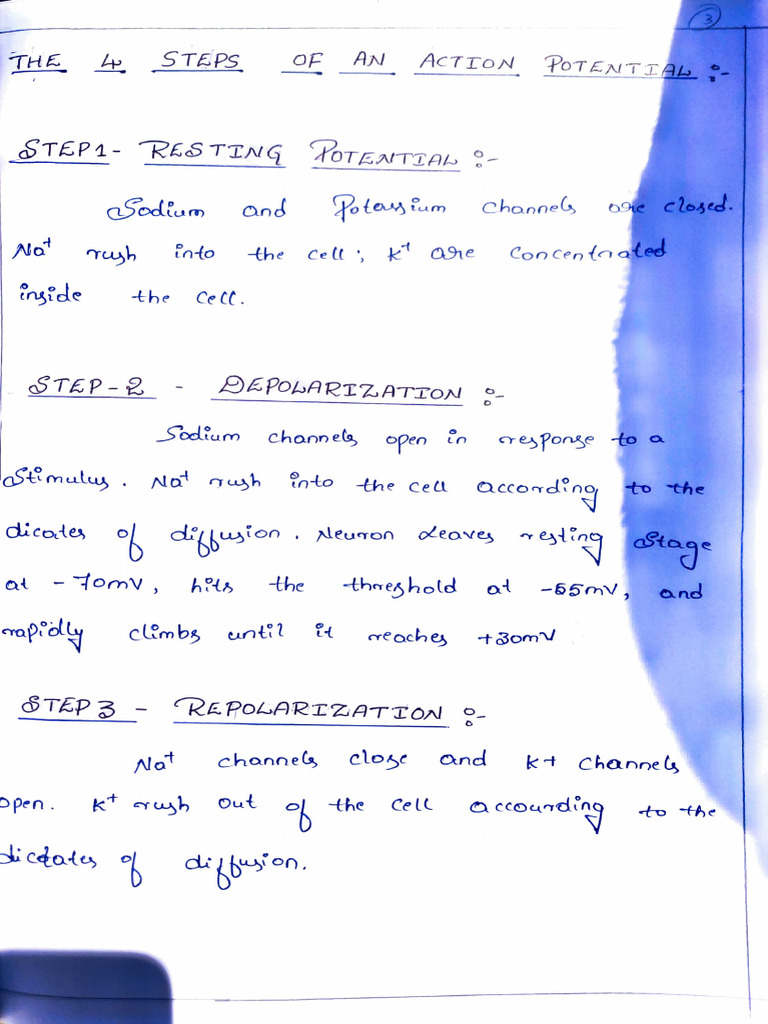 3
THE 4 STEPS OF AN ACTION POTENTIAL :-
STEP1 - RESTING POTENTIAL :-
Sodium and Potassium channels are closed.
Na+ rush into the cell; K+ are concentrated
inside the cell.
STEP-2 - DEPOLARIZATION :-
Sodium channels open in response to a
stimulus. Na+ rush into the cell according to the
dicates of diffusion. Neuron leaves resting stage
at -70mV, hits the threshold at -55mV, and
rapidly climbs until it reaches +30mV
STEP 3 - REPOLARIZATION :-
Na+ channels close and K+ channels
open. K+ rush out of the cell accourding to the
dictates of diffusion.